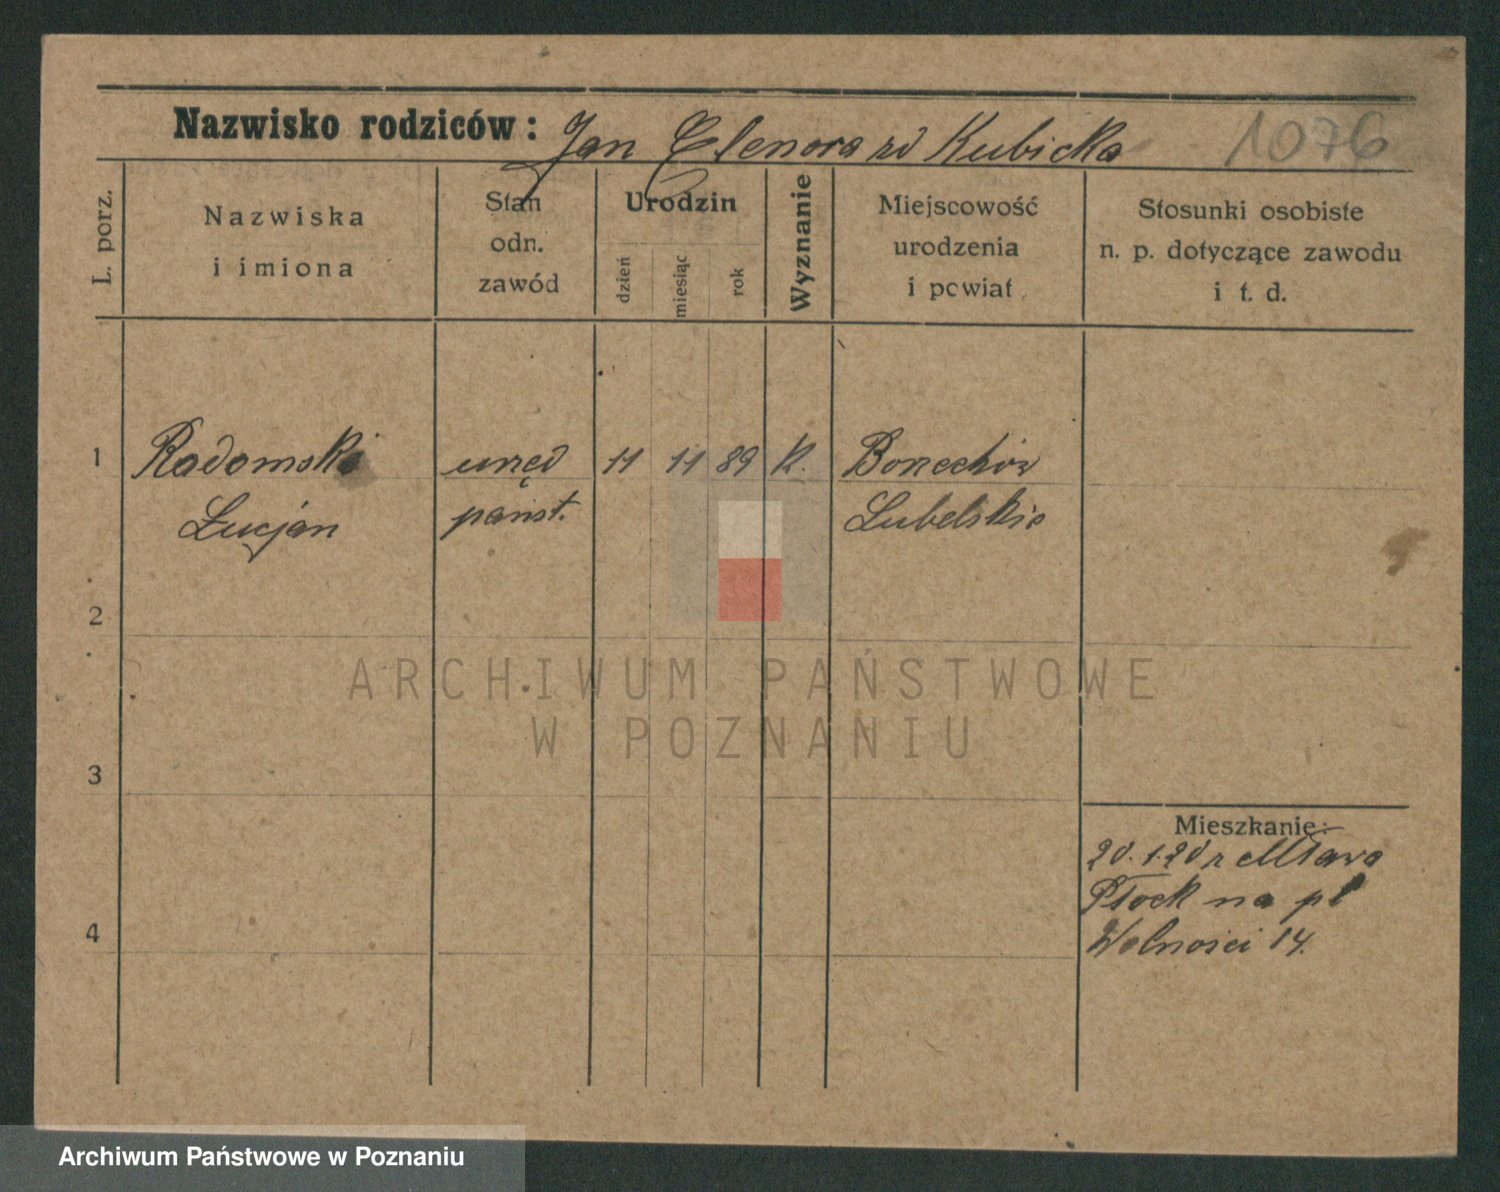 Nazwisko rodziców: Jan Elenora zd Kubicka 1076
L. porz.
Nazwiska
i imiona
Stan
odn.
zawód
Urodzin
dzień
miesiąc
rok
Wyznanie
Miejscowość
urodzenia
i powiat
Stosunki osobiste
n. p. dotyczące zawodu
i t. d.
1 Radomski urzęd 11 11 89 K. Borzechów
Łucjan państ. Lubelskie
2
3
4
ARCHIWUM PAŃSTWOWE
W POZNANIU
Mieszkanie:
20.1.20 z Mława
Płock na pl
Wolności 14.
Archiwum Państwowe w Poznaniu